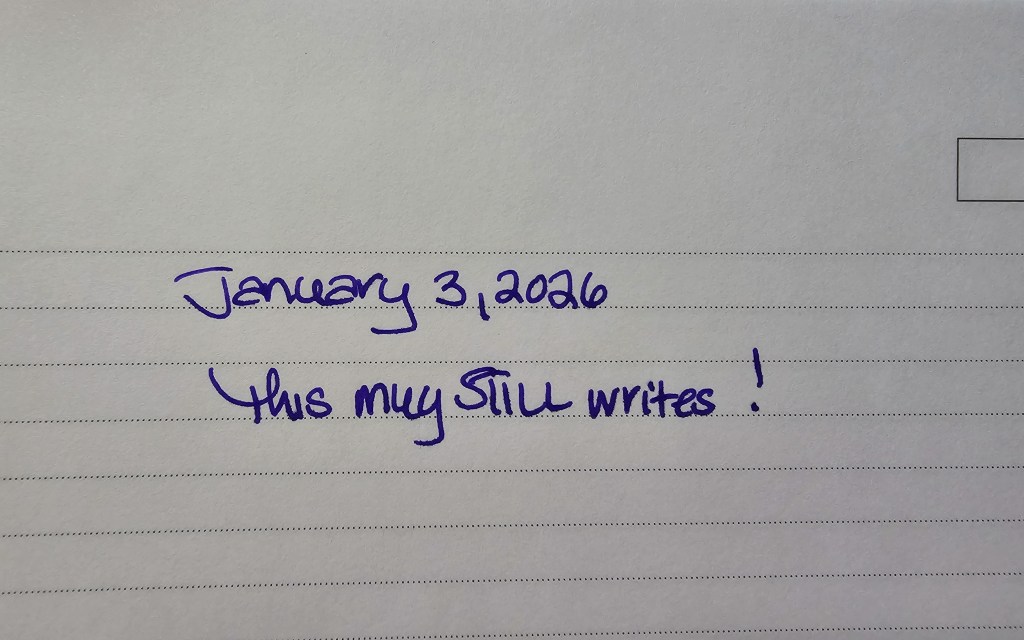 January 3, 2026
this mug STILL writes !